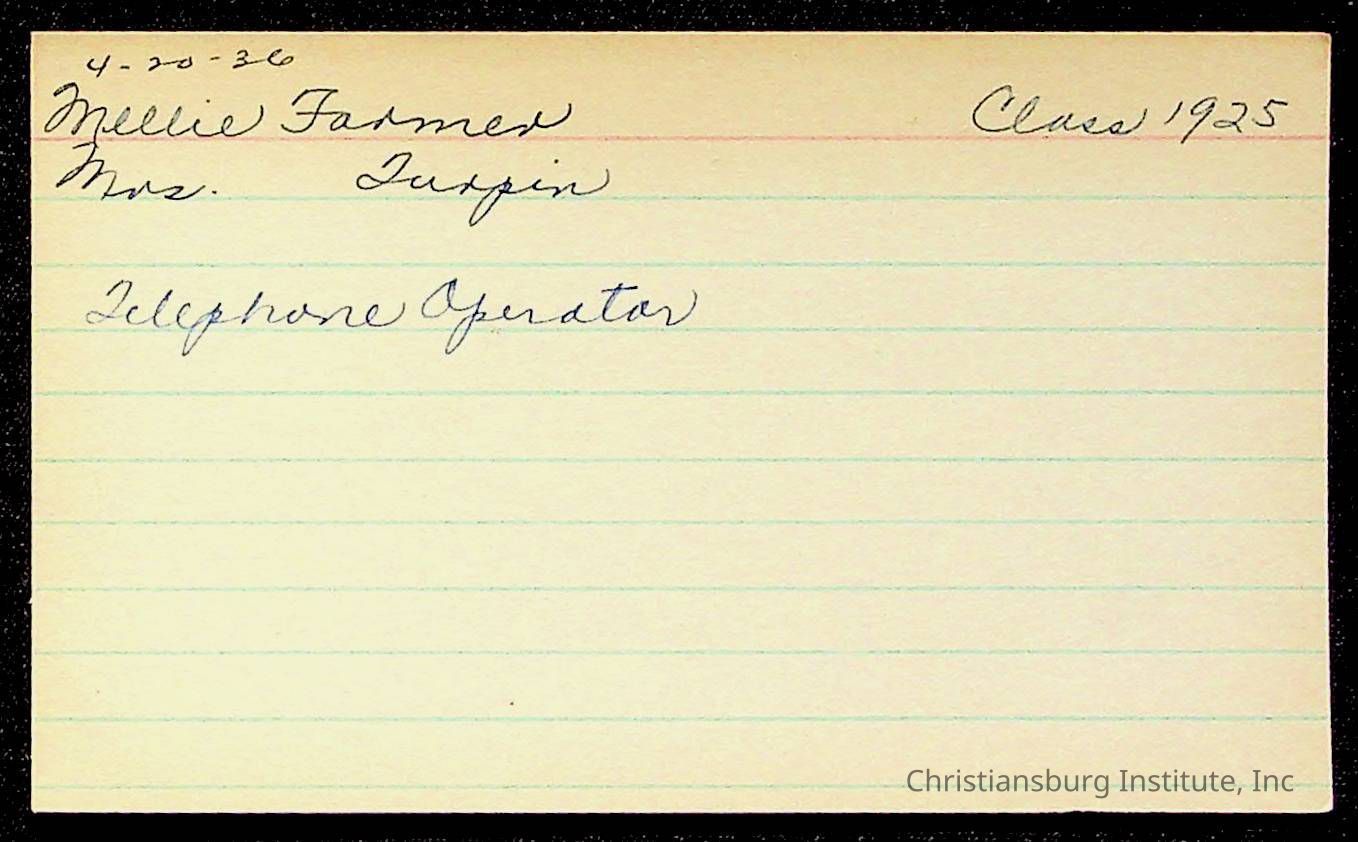 4-20-36
Mellie Farmer Class 1925
Mrs. Turpin
Telephone Operator
Christiansburg Institute, Inc